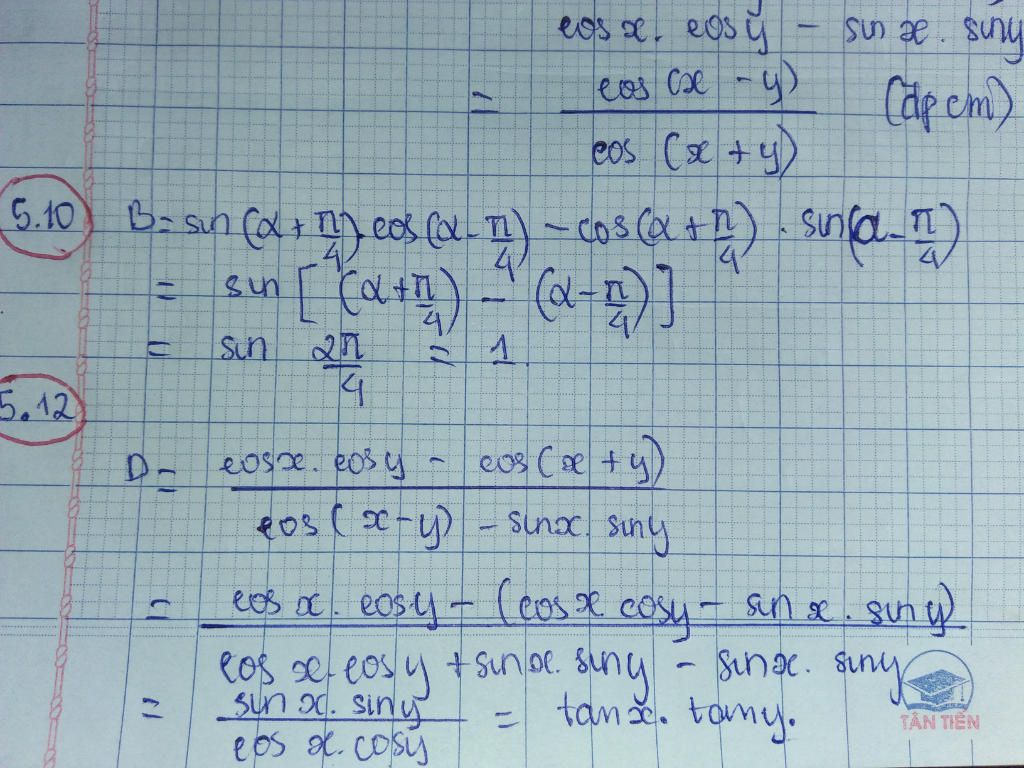 cosx. cosy - sinx. siny
= cos(x - y) / cos(x + y) (đpcm)
5.10 B = sin(α + π/4) cos(α - π/4) - cos(α + π/4) . sin(α - π/4)
= sin [(α + π/4) - (α - π/4)]
= sin 2π/4 = 1.
5.12
D = cosx. cosy - cos(x + y) / cos(x - y) - sinx. siny
= cosx. cosy - (cosx cosy - sinx. siny) / cosx. cosy + sinx. siny - sinx. siny
= sinx. siny / cosx. cosy = tanx. tany.
TÂN TIẾN